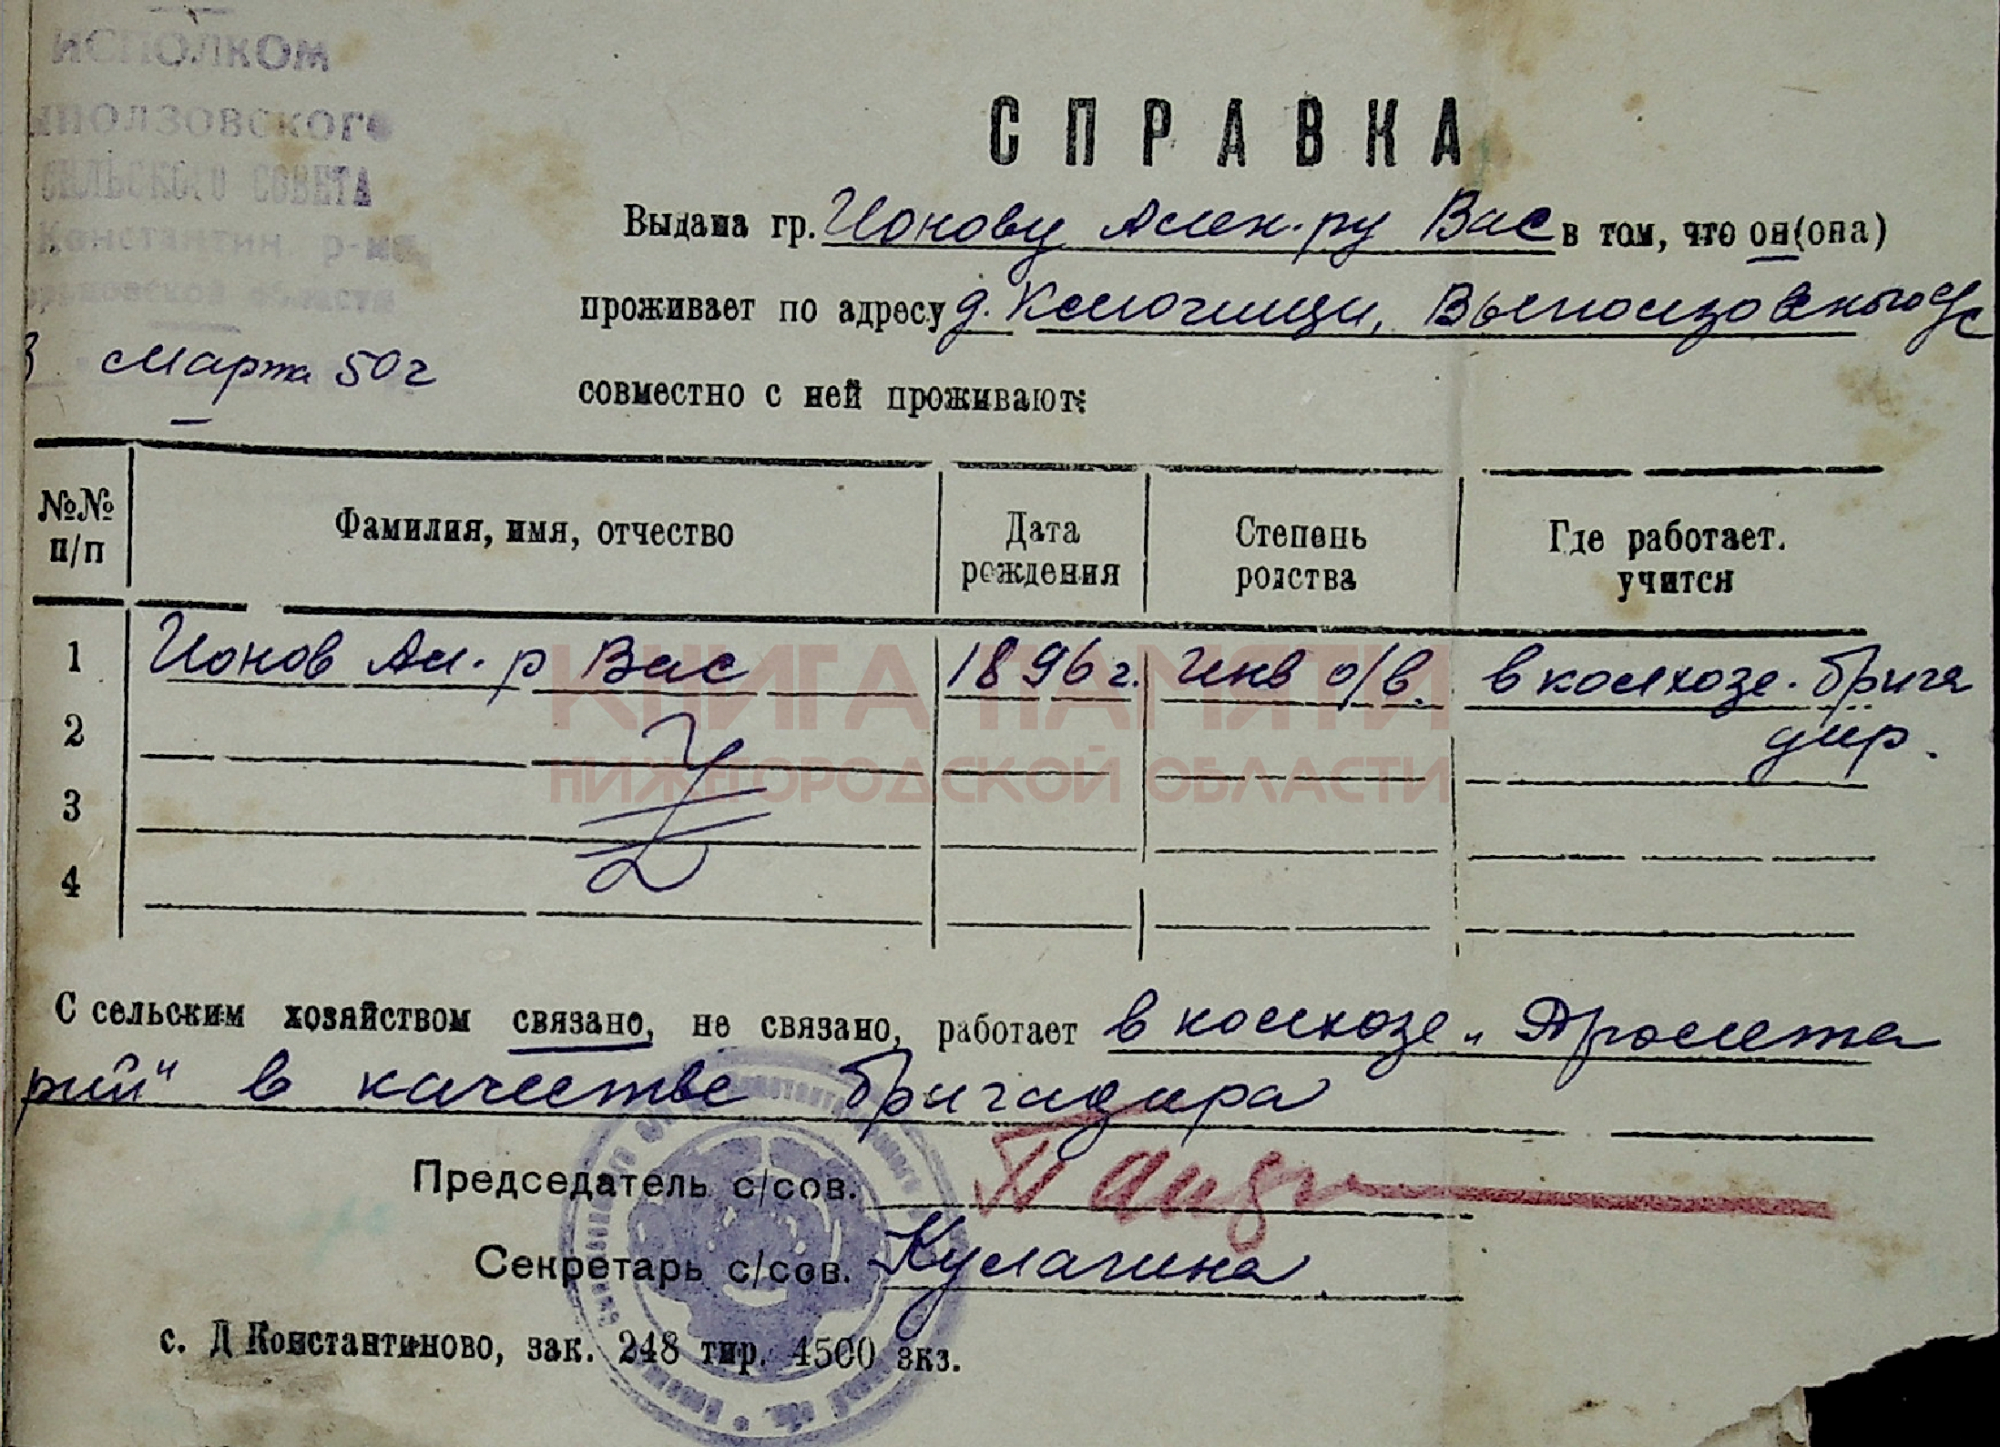 ИСПОЛКОМ
ыползовского
СЕЛЬСКОГО СОВЕТА
Константин р-на
орьковской области
3 Марта 50 г
СПРАВКА
Выдана гр. Ионову Алек-ру Вас в том, что он (она)
проживает по адресу д. Ключищи, Выползовского с/с
совместно с ней проживают:
№№ п/п
Фамилия, имя, отчество
Дата рождения
Степень родства
Где работает. учится
1 Ионов Ал-р Вас 1896 г. Инв о/в. в колхозе. брига
дир.
2
3
4
КНИГА ПАМЯТИ
НИЖЕГОРОДСКОЙ ОБЛАСТИ
С сельским хозяйством связано, не связано, работает в колхозе „Пролета
рий" в качестве бригадира
Председатель с/сов.
Секретарь с/сов. Кулагина
с. Д Константиново, зак. 248 тир. 4500 экз.